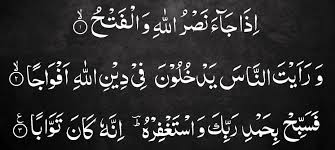 اِذَا جَآءَ نَصْرُ اللّٰهِ وَالْفَتْحُ ۙ‏﴿۱﴾
وَ رَاَیْتَ النَّاسَ یَدْخُلُوْنَ فِیْ دِیْنِ اللّٰهِ اَفْوَاجًا ۙ‏﴿۲﴾
فَسَبِّحْ بِحَمْدِ رَبِّكَ وَ اسْتَغْفِرْهُ ؕ اِنَّهٗ كَانَ تَوَّابًا ﴿۳﴾ ع